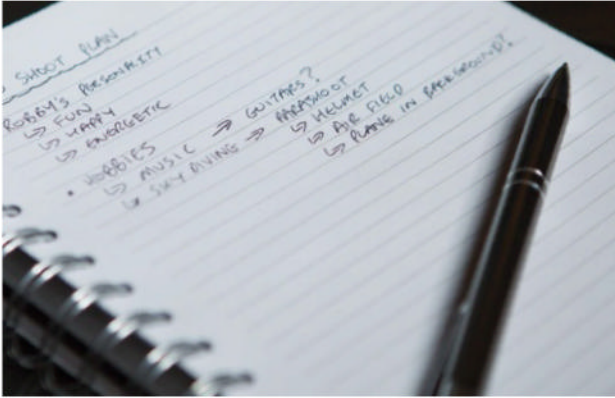 SHOOT PLAN
ROBBY'S PERSONALITY
↳ FUN
↳ HAPPY
↳ ENERGETIC
• HOBBIES
↳ MUSIC → GUITARS?
↳ SKY DIVING → PARASHOOT
↳ HELMET
↳ AIR FIELD
↳ PLANE IN BACKGROUND?